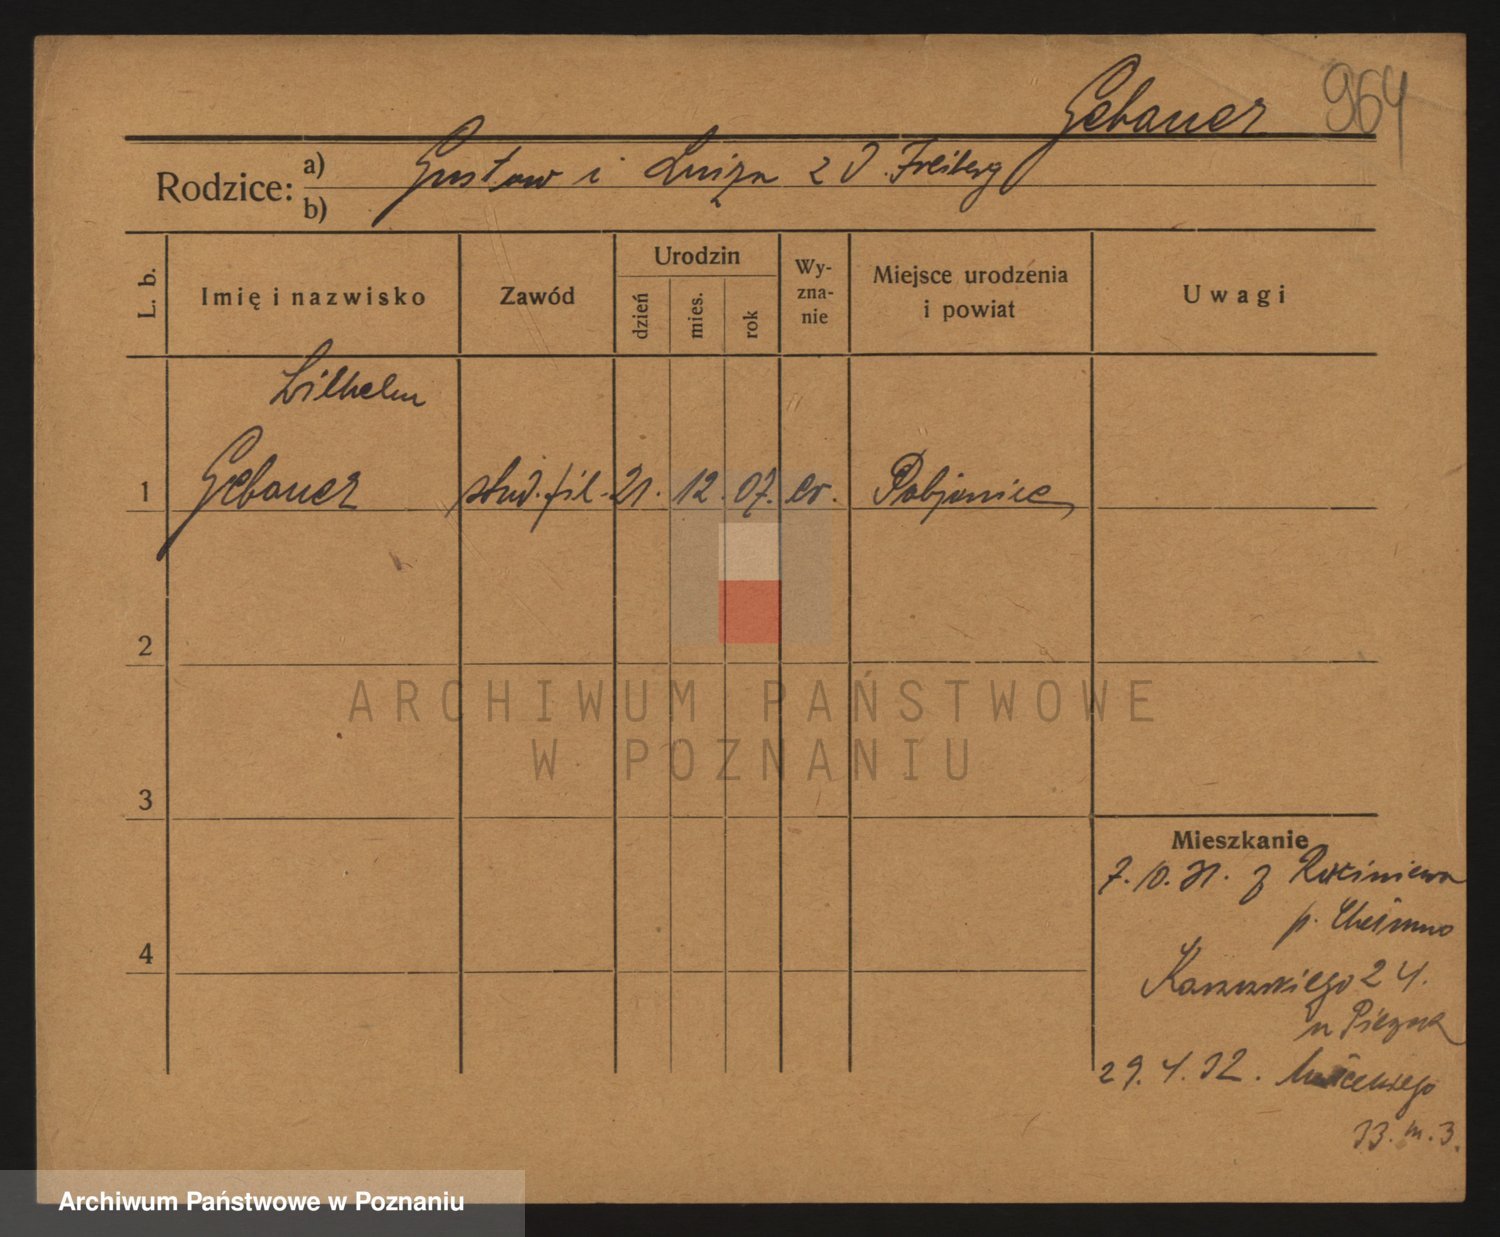 Gebauer 964
Rodzice: a) Gustaw i Luiza z d. Freiberg
b)
L. b.
Imię i nazwisko
Zawód
Urodzin
dzień
mies.
rok
Wy-
zna-
nie
Miejsce urodzenia
i powiat
Uwagi
Wilhelm
1 Gebauer stud. fil. 21. 12. 07. ev. Pabjanice
2
ARCHIWUM PAŃSTWOWE
W POZNANIU
3
Mieszkanie
7. 10. 31. z
p. Chełmno
4
24.
u
29. 4. 32.
33. m. 3.
Archiwum Państwowe w Poznaniu